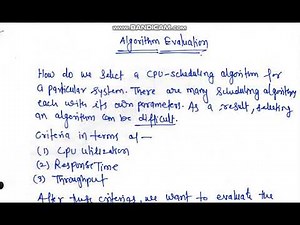 WWW.BANDICAM.COM
Algorithm Evaluation
How do we select a CPU-scheduling algorithm for
a particular system. There are many scheduling algorithms
each with its own parameters. As a result, selecting
an algorithm can be difficult.
Criteria in terms of —
(1) CPU utilization
(2) Response Time
(3) Throughput
After these criterias, we want to evaluate the